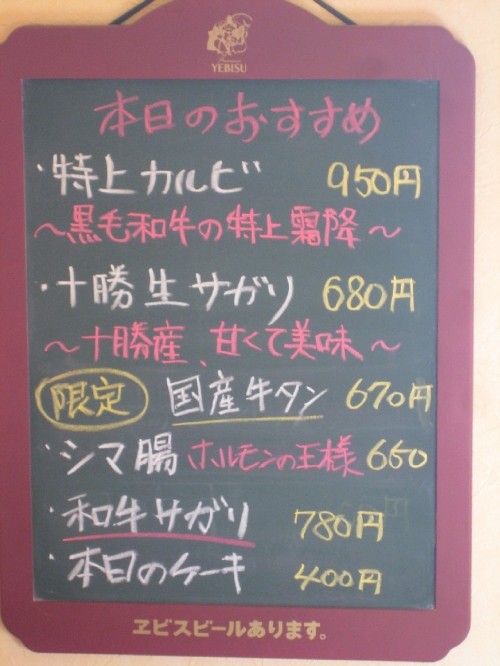 YEBISU
本日のおすすめ
・特上カルビ 950円
～黒毛和牛の特上霜降～
・十勝生サガリ 680円
～十勝産、甘くて美味～
限定 国産牛タン 670円
・シマ腸 ホルモンの王様 660
・和牛サガリ 780円
・本日のケーキ 400円
ヱビスビールあります。